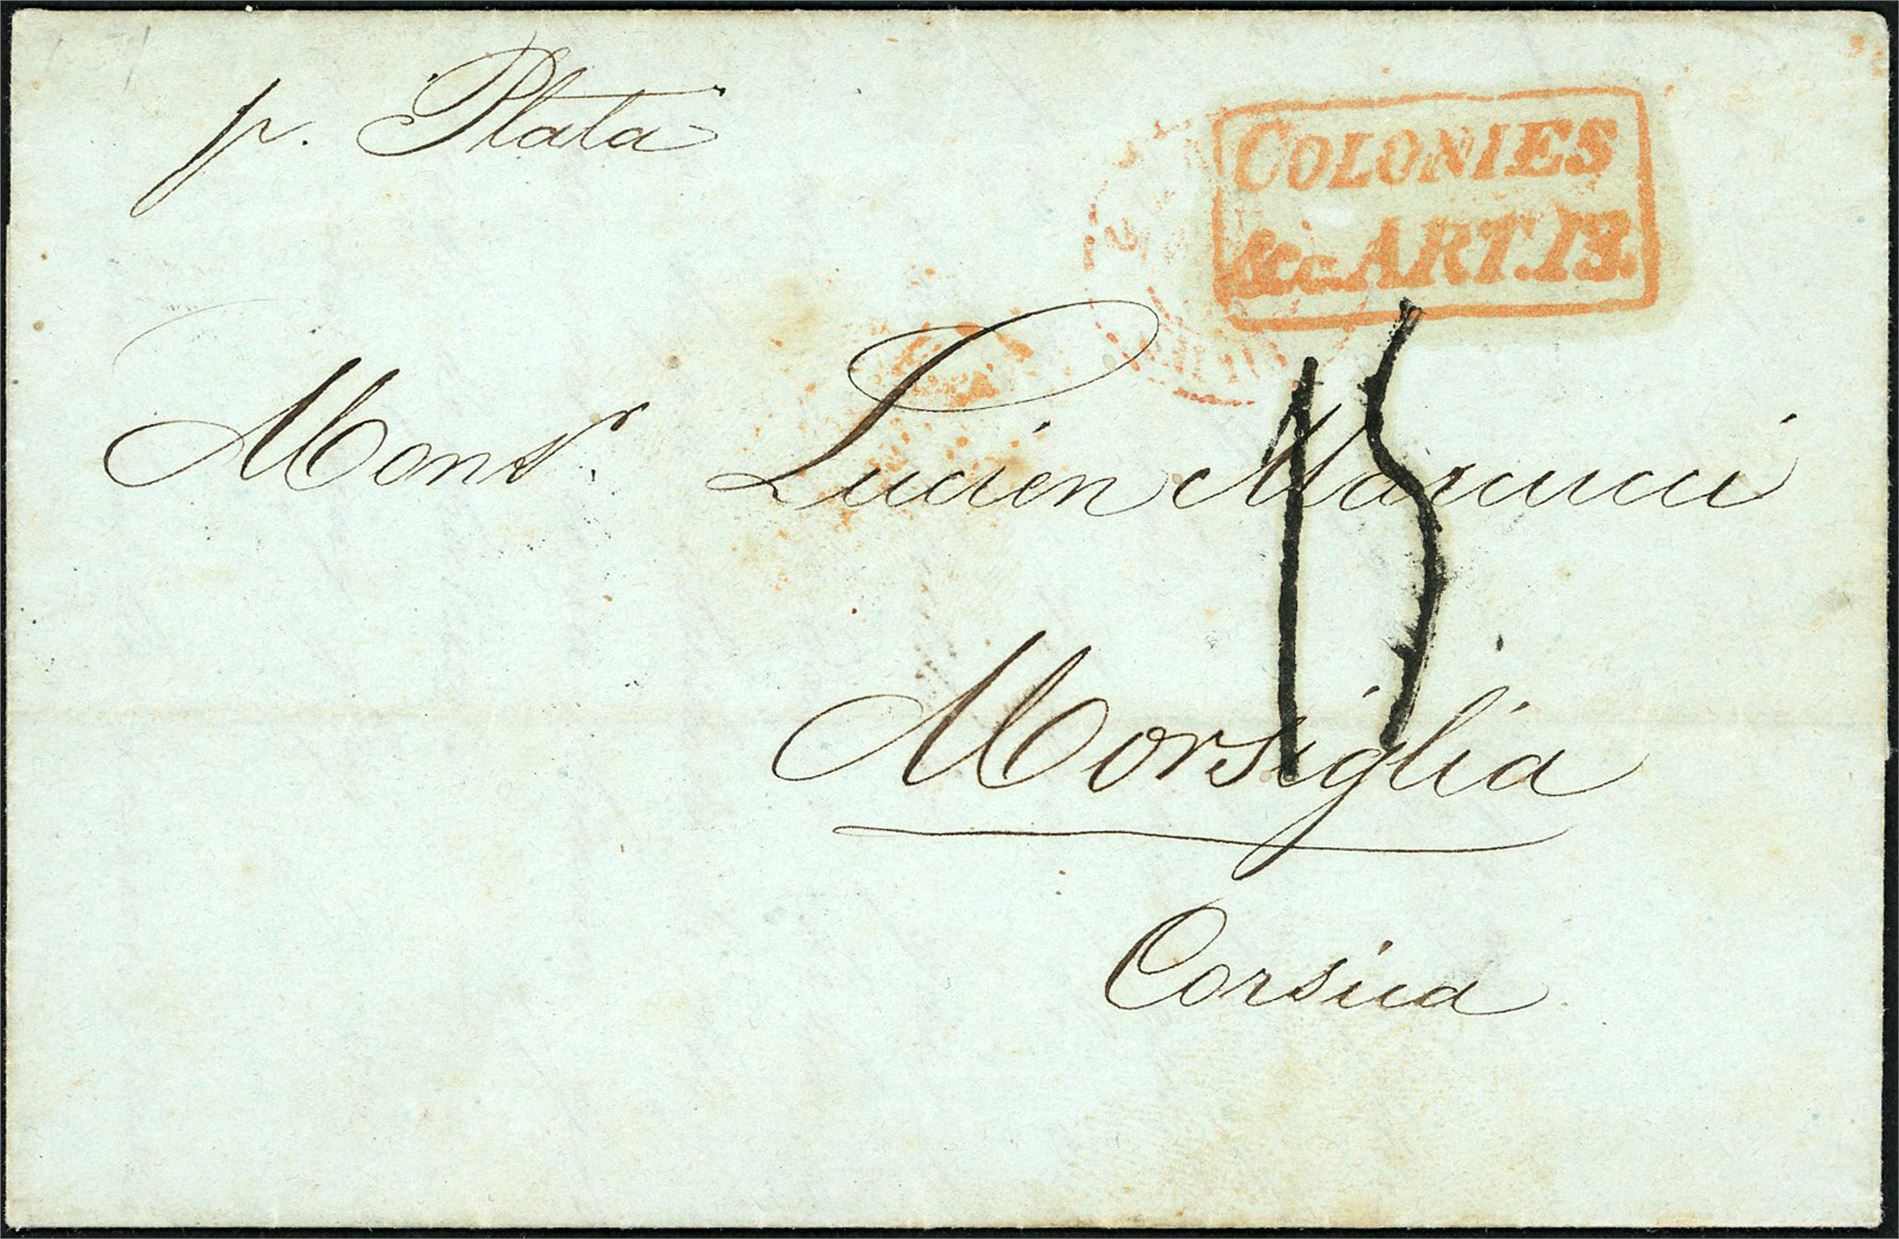 pr. Plata
COLONIES
&c. ART. 13.
Monsr. Lucien Marcucci
15
Morsiglia
Corsica